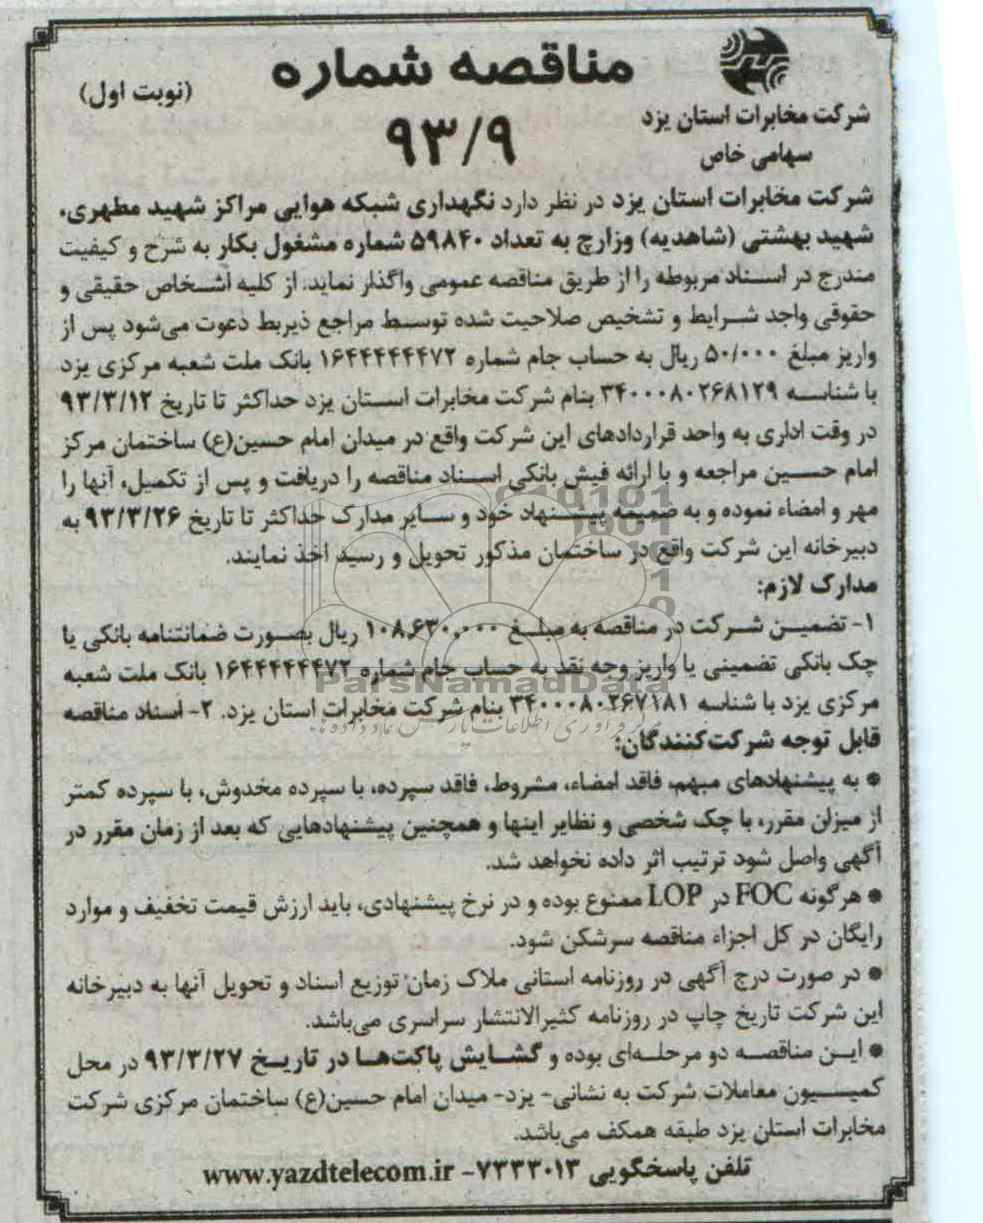 مناقصه شماره
(نوبت اول)
۹۳/۹
شرکت مخابرات استان یزد
سهامی خاص
شرکت مخابرات استان یزد در نظر دارد نگهداری شبکه هوایی مراکز شهید مطهری،
شهید بهشتی (شاهدیه) وزارچ به تعداد ۵۹۸۴۰ شماره مشغول بکار به شرح و کیفیت
مندرج در اسناد مربوطه را از طریق مناقصه عمومی واگذار نماید. از کلیه اشخاص حقیقی و
حقوقی واجد شرایط و تشخیص صلاحیت شده توسط مراجع ذیربط دعوت می‌شود پس از
واریز مبلغ ۵۰/۰۰۰ ریال به حساب جام شماره ۱۶۴۴۴۴۴۴۷۲ بانک ملت شعبه مرکزی یزد
با شناسه ۳۴۰۰۰۸۰۲۶۸۱۲۹ بنام شرکت مخابرات استان یزد حداکثر تا تاریخ ۹۳/۳/۱۲
در وقت اداری به واحد قراردادهای این شرکت واقع در میدان امام حسین(ع) ساختمان مرکز
امام حسین مراجعه و با ارائه فیش بانکی اسناد مناقصه را دریافت و پس از تکمیل، آنها را
مهر و امضاء نموده و به ضمیمه پیشنهاد خود و سایر مدارک حداکثر تا تاریخ ۹۳/۳/۲۶ به
دبیرخانه این شرکت واقع در ساختمان مذکور تحویل و رسید اخذ نمایند.
مدارک لازم:
۱- تضمین شرکت در مناقصه به مبلغ ۱۰۸,۶۳۰,۰۰۰ ریال بصورت ضمانتنامه بانکی یا
چک بانکی تضمینی یا واریز وجه نقد به حساب جام شماره ۱۶۴۴۴۴۴۴۷۲ بانک ملت شعبه
مرکزی یزد با شناسه ۳۴۰۰۰۸۰۲۶۷۱۸۱ بنام شرکت مخابرات استان یزد. ۲- اسناد مناقصه
قابل توجه شرکت‌کنندگان:
* به پیشنهادهای مبهم، فاقد امضاء، مشروط، فاقد سپرده، با سپرده مخدوش، با سپرده کمتر
از میزان مقرر، با چک شخصی و نظایر اینها و همچنین پیشنهادهایی که بعد از زمان مقرر در
آگهی واصل شود ترتیب اثر داده نخواهد شد.
* هرگونه FOC در LOP ممنوع بوده و در نرخ پیشنهادی، باید ارزش قیمت تخفیف و موارد
رایگان در کل اجزاء مناقصه سرشکن شود.
* در صورت درج آگهی در روزنامه استانی ملاک زمان توزیع اسناد و تحویل آنها به دبیرخانه
این شرکت تاریخ چاپ در روزنامه کثیرالانتشار سراسری می‌باشد.
* این مناقصه دو مرحله‌ای بوده و گشایش پاکت‌ها در تاریخ ۹۳/۳/۲۷ در محل
کمیسیون معاملات شرکت به نشانی- یزد- میدان امام حسین(ع) ساختمان مرکزی شرکت
مخابرات استان یزد طبقه همکف می‌باشد.
تلفن پاسخگویی ۷۲۳۳۰۱۳- www.yazdtelecom.ir
ParsNamadData